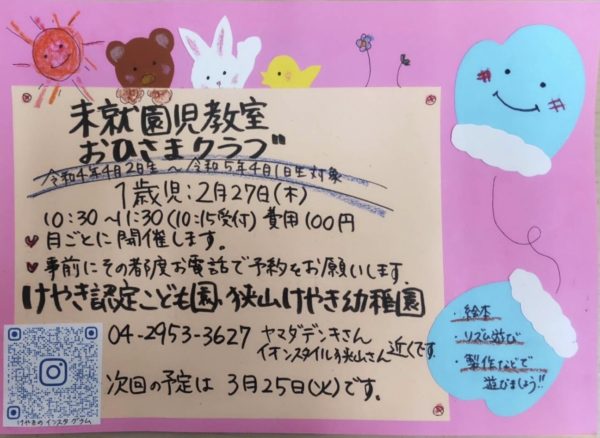 未就園児教室
おひさまクラブ
令和4年4月2日生～令和5年4月1日生対象
1歳児:2月27日(木)
10:30～11:30(10:15受付)費用100円
月ごとに開催します。
事前にその都度お電話で予約をお願いします。
けやき認定こども園・狭山けやき幼稚園
04-2953-3627
ヤマダデンキさん
イオンスタイル狭山さん
近くです
次回の予定は 3月25日(火)です。
けやきのインスタグラム
・絵本
・リズム遊び
・製作などで
遊びましょう!!